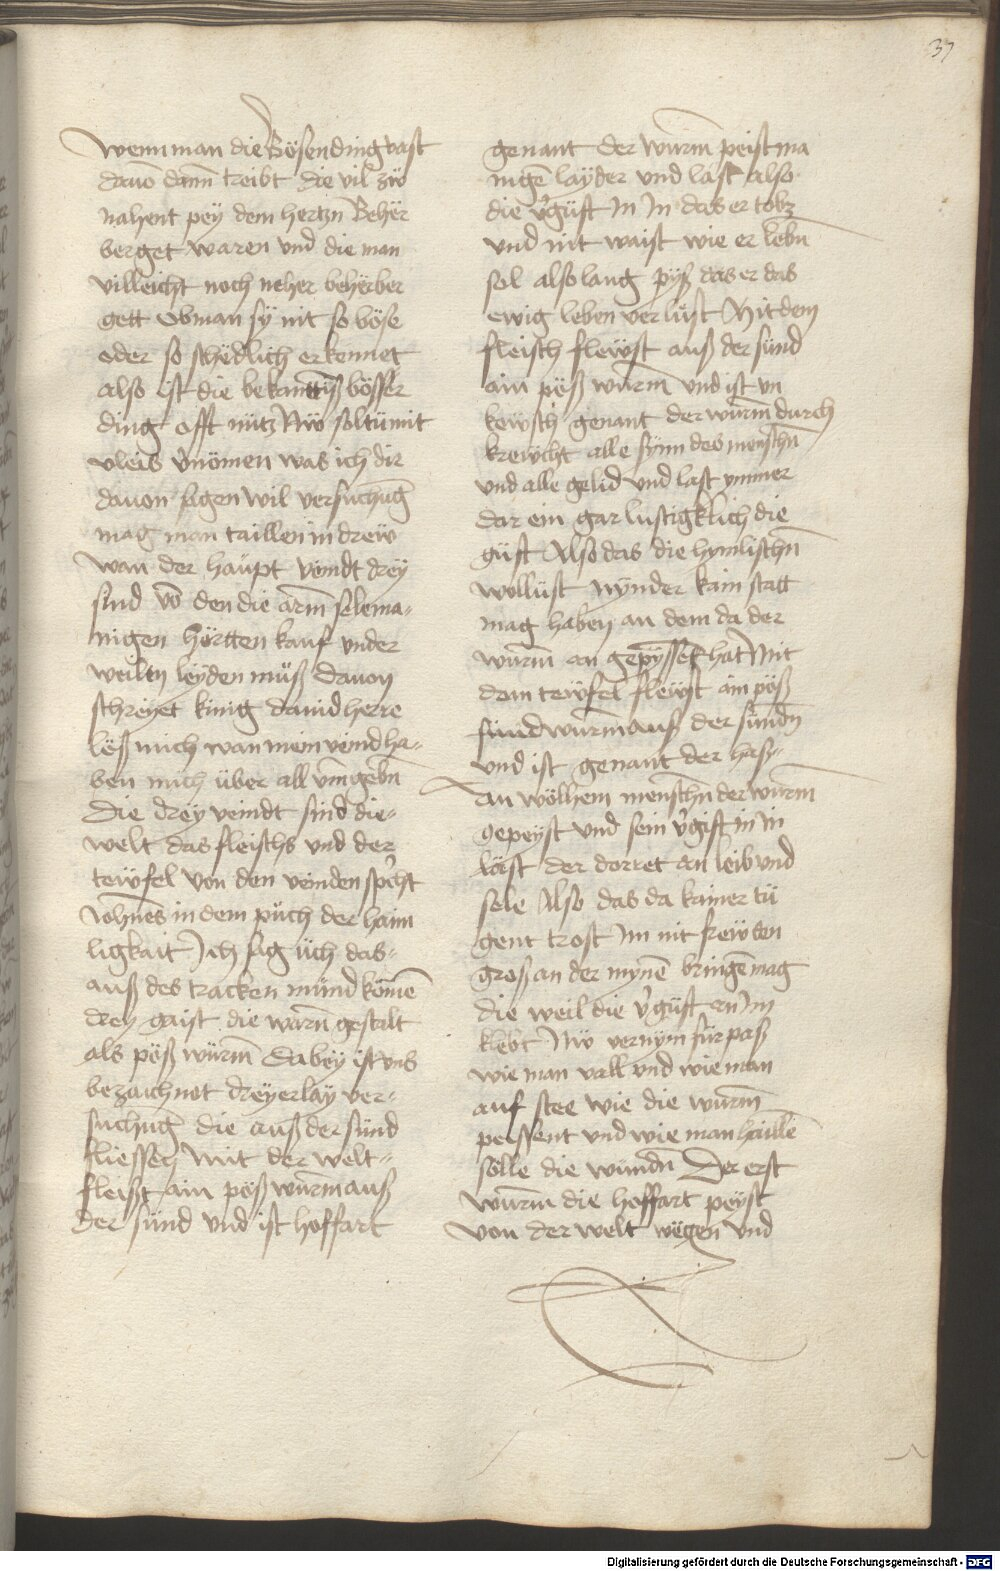 37
Wenn man die Bösen ding vast
dauō dann treibt die vil zw̄
nahent pey dem hertzn Beher
berget waren vnd die man
villeicht noch neher beherber
gett Ob man sÿ nit so böse
oder so schedlich erkennet
also ist die bekanttnß böser
ding offt nütz Nw̄ soltu mit
vleis v̓nömen was ich dir
dauon sagen wil versuchūg
mag man taillen in drew̄
wan der haüpt veindt dreÿ
sind vō den die arm sele ma-
nigen hörtten kauf vnder
weiln leyden müß dauon
schreyet künig dauid herre
löß mich wan mein veind ha-
ben mich über all vmgebn
Die dreÿ veindt sind die-
welt das fleischs vnd der
tewfel von den veinden spcht
Johnes in dem püch der haim
ligkait Ich sag üch das-
auß des tracken münd kömē
dreÿ gaist die warn gestalt
als pöß würm Dabey ist vns
bezaichnet dreyerlaÿ ver-
suchūg die auß der sünd
fliessen Mit der welt-
fleüßt ain pöß wurm auß
der sünd vnd ist hoffart
genant der wurm peist ma
nigē layder vnd last also
die v̓güft in Im das er tobt
vnd nit waist wie er lebn
sol also lang pyß das er das
ewig leben verlüst Mit dem
fleisch flewst auß der sünd
ain pöß wurm vnd ist vn
kewsch genant der wurm durch
krewcht alle synn des menschn
vnd alle gelid vnd last ymmer
dar ein gar lustigklich die
güft Also das die hymlischn
wollüst nynder kain statt
mag haben an dem da der
wurm an gepyssen hat Mit
dem tewfel flewst ain pöß
sündwurm auß der sündn
vnd ist genant der haß-
An wölhem menschn der wurm
gepeyst vnd sein v̓gift in in
läst der dorret an leib vnd
sele Also das da kainer tü
gent trost im nit frewden
groß an der mynē bringē mag
die weil die v̓güft an Im
klebt Nw̄ vernym für paß
wie man vall vnd wie man
auf stee wie die wurm
peissent vnd wie man hailē
sölle die wundn Der erst
wurm die hoffart peyst
von der welt wegen vnd
Digitalisierung gefördert durch die Deutsche Forschungsgemeinschaft - DFG